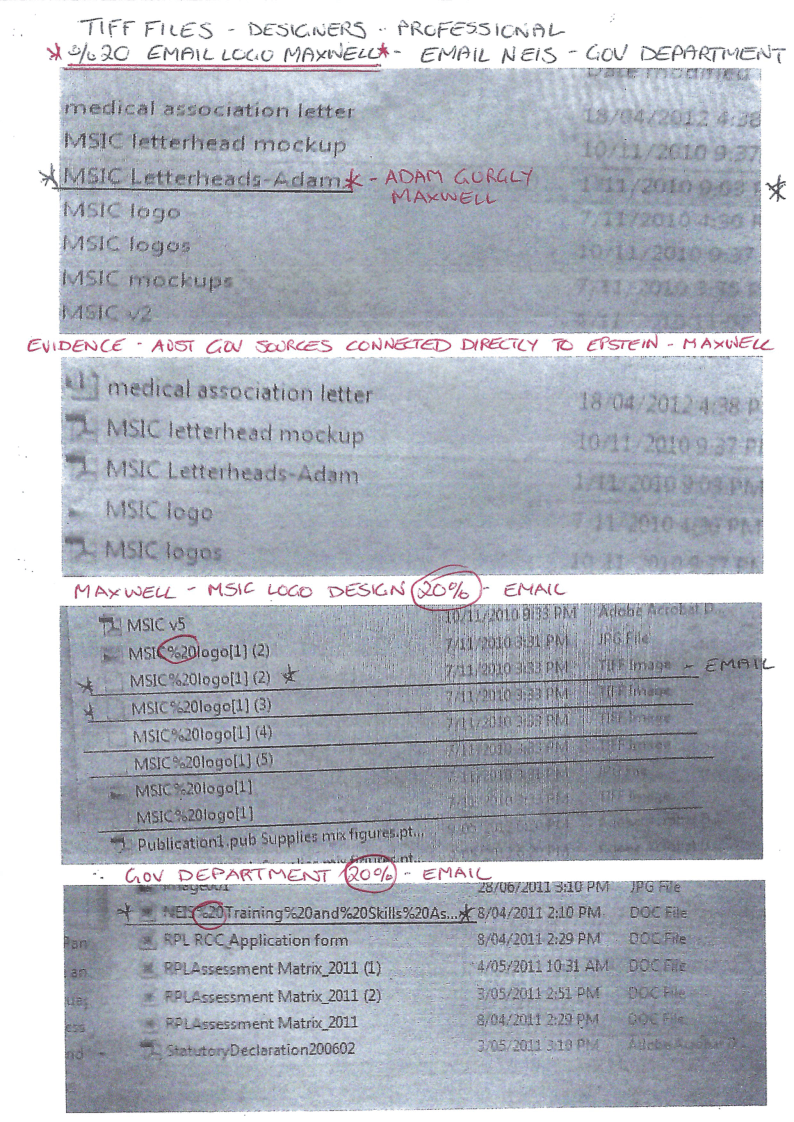 TIFF FILES - DESIGNERS - PROFESSIONAL
* %20 EMAIL LOGO MAXWELL* - EMAIL NEIS - GOV DEPARTMENT
Date modified
medical association letter 18/04/2012 4:38
MSIC letterhead mockup 10/11/2010 9:37
* MSIC Letterheads-Adam * - ADAM GURGLY 1/11/2010 9:03 *
MAXWELL
MSIC logo 7/11/2010 4:36
MSIC logos 10/11/2010 9:37
MSIC mockups
MSIC v2
EVIDENCE - AUST GOV SOURCES CONNECTED DIRECTLY TO EPSTEIN - MAXWELL
medical association letter 18/04/2012 4:38 P
MSIC letterhead mockup 10/11/2010 9:37 PM
MSIC Letterheads-Adam 1/11/2010 9:03 PM
MSIC logo 7/11/2010 4:36 PM
MSIC logos 10/11/2010 9:37 PM
MAXWELL - MSIC LOGO DESIGN 20% - EMAIL
MSIC v5 10/11/2010 9:33 PM Adobe Acrobat D...
MSIC%20logo[1] (2) 7/11/2010 3:31 PM JPG File
* MSIC%20logo[1] (2) * 7/11/2010 3:33 PM TIFF Image - EMAIL
* MSIC%20logo[1] (3) 7/11/2010 3:33 PM TIFF Image
MSIC%20logo[1] (4) 7/11/2010 3:33 PM TIFF Image
MSIC%20logo[1] (5) 7/11/2010 3:33 PM TIFF Image
MSIC%20logo[1] 7/11/2010 3:31 PM JPG File
MSIC%20logo[1] TIFF Image
Publication1.pub Supplies mix figures.pt...
∴ GOV DEPARTMENT 20% - EMAIL
image001 28/06/2011 3:10 PM JPG File
* NEIS%20Training%20and%20Skills%20As... * 8/04/2011 2:10 PM DOC File
RPL RCC_Application form 8/04/2011 2:29 PM DOC File
RPLAssessment Matrix_2011 (1) 4/05/2011 10:31 AM DOC File
RPLAssessment Matrix_2011 (2) 3/05/2011 2:51 PM DOC File
RPLAssessment Matrix_2011 8/04/2011 2:29 PM DOC File
StatutoryDeclaration200602 3/05/2011 3:10 PM Adobe Acrobat D...